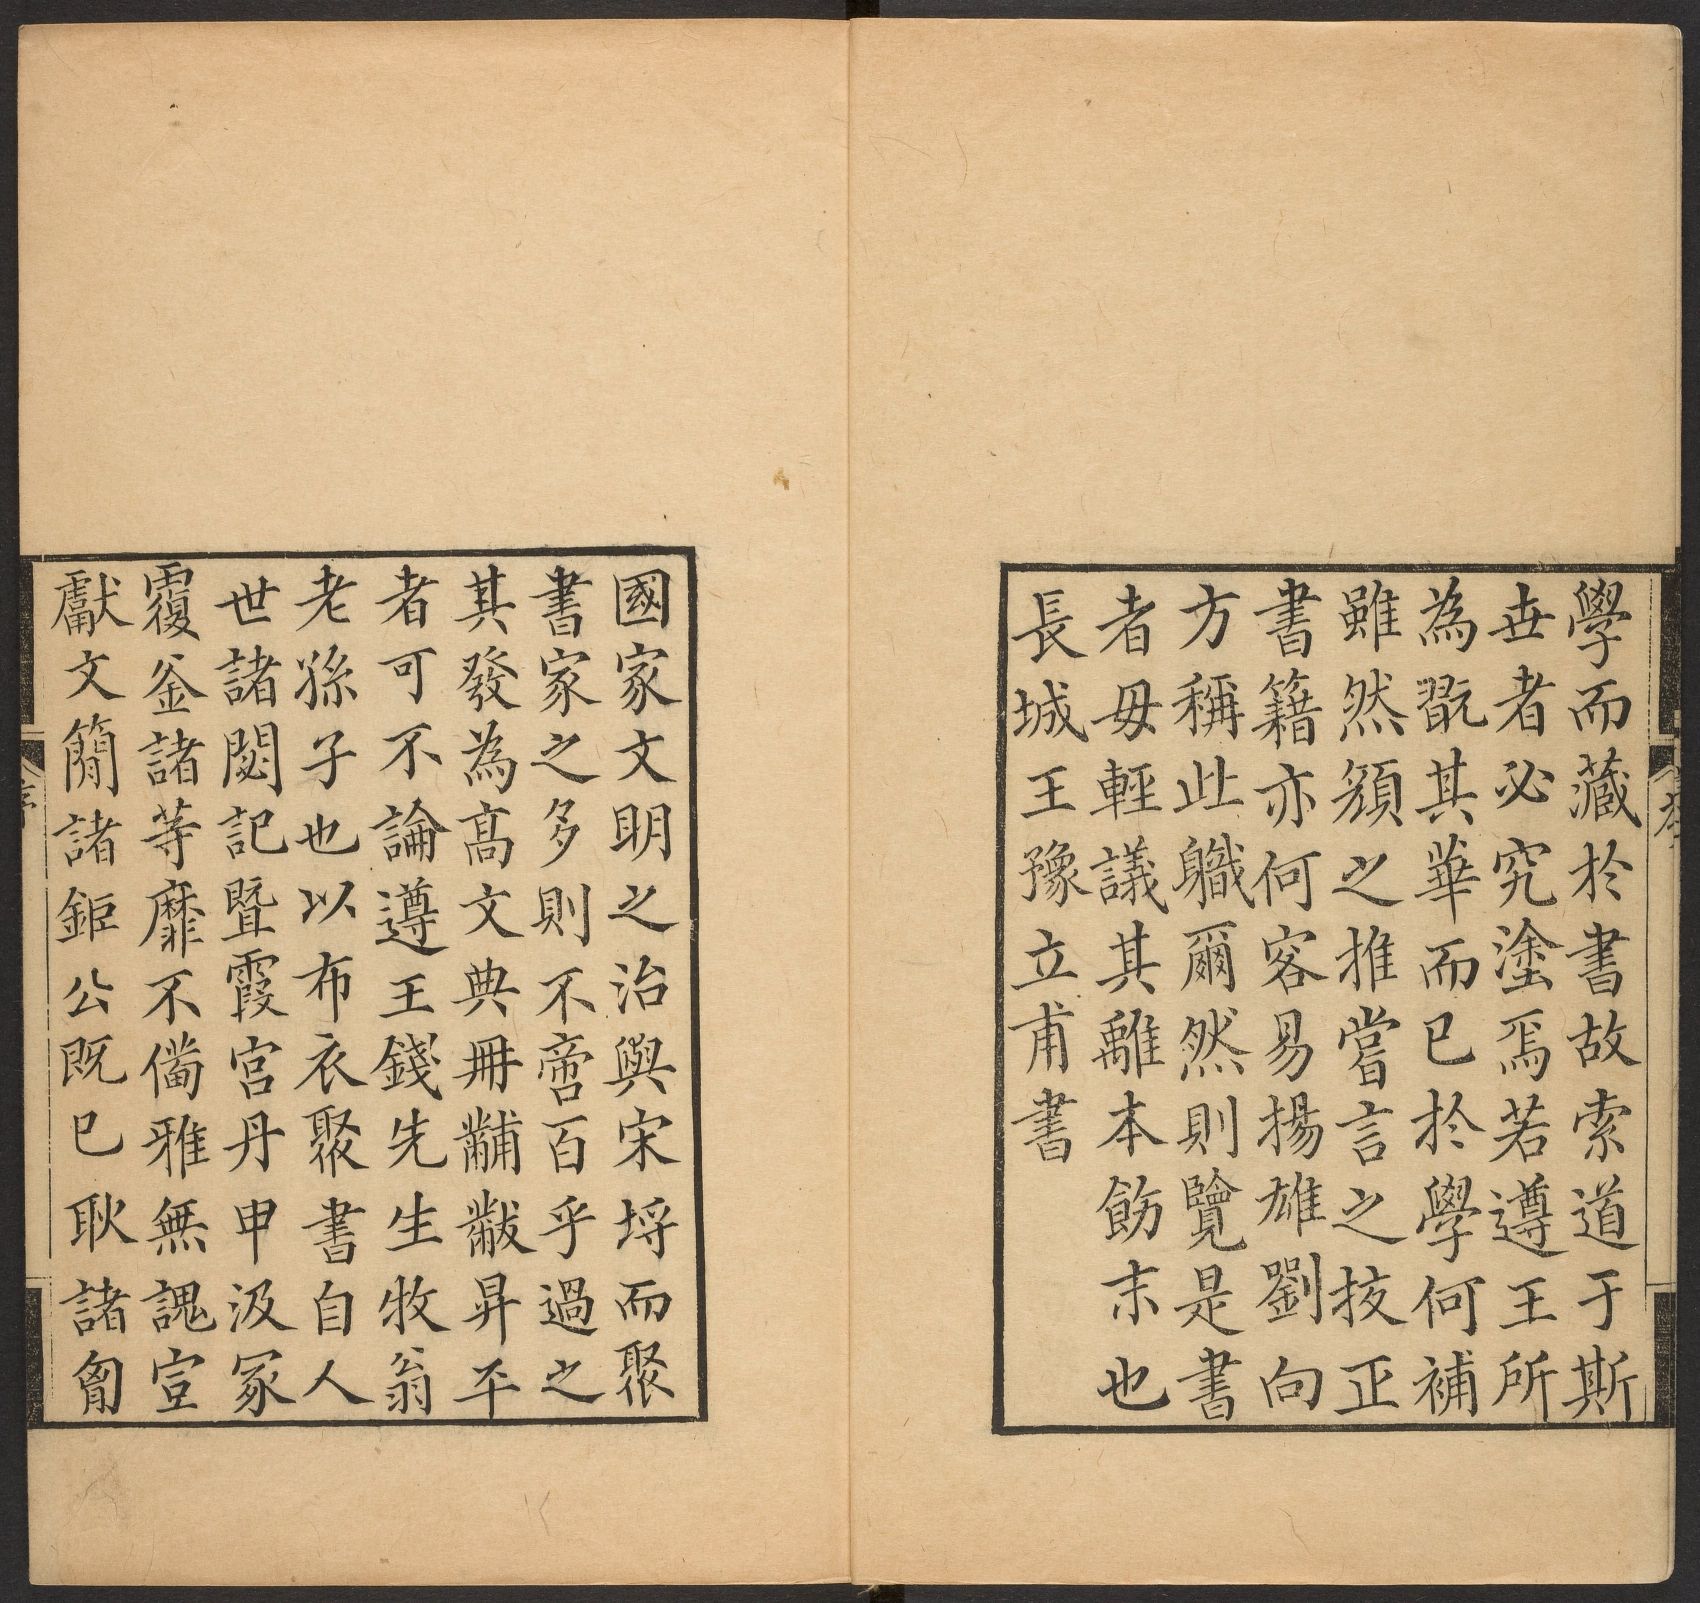 學而藏於書故索道于斯
世者必究塗焉若遵王所
為翫其華而已於學何補
雖然頫之推嘗言之挍正
書籍亦何容易揚雄劉向
方稱此軄爾然則覽是書
者毋輕議其離本飭末也
長城王豫立甫書
國家文明之治與宋埒而聚
書家之多則不啻百乎過之
其發為高文典冊黼黻昇平
者可不論遵王錢先生牧翁
老孫子也以布衣聚書自人
世諸閟記曁霞宮丹申汲冢
覆釜諸荨靡不僃雅無諐宣
獻文簡諸鉅公既巳耿諸匈
序